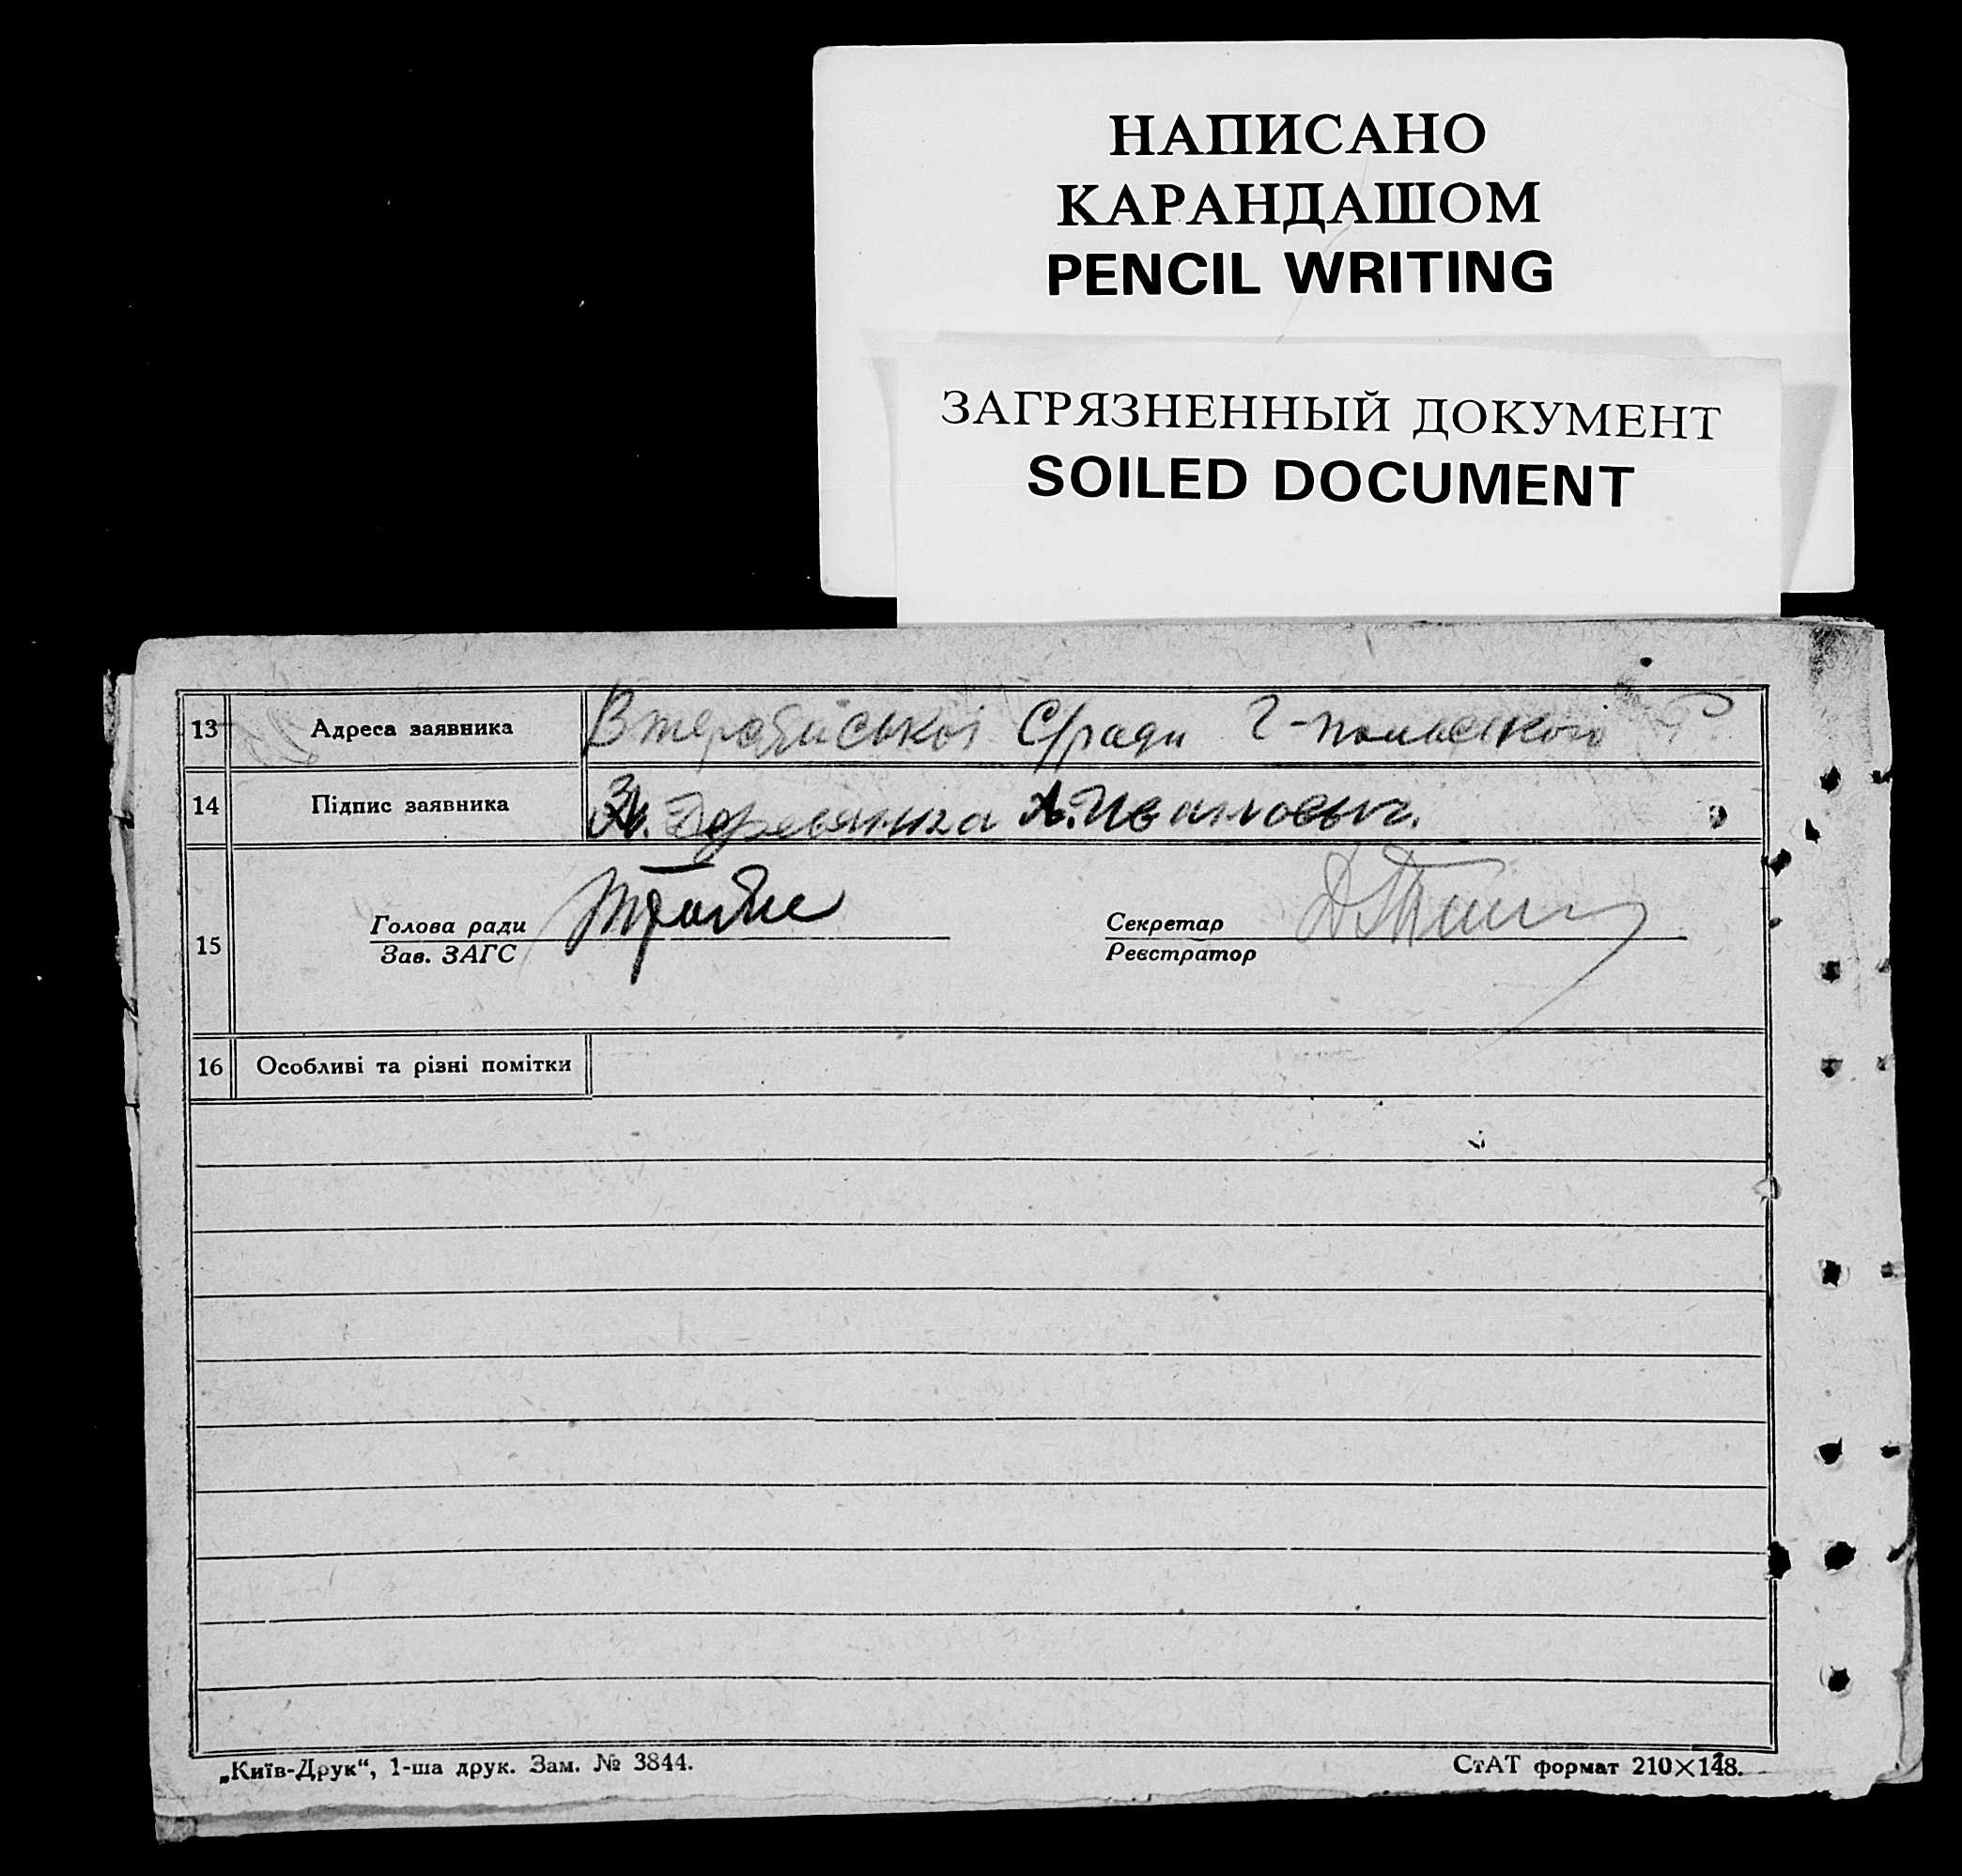 НАПИСАНО
КАРАНДАШОМ
PENCIL WRITING
ЗАГРЯЗНЕННЫЙ ДОКУМЕНТ
SOILED DOCUMENT
13 Адреса заявника С/ради
14 Підпис заявника
Голова ради Секретар
15
Зав. ЗАГС Реєстратор
16 Особливі та різні помітки
„Київ-Друк“, 1-ша друк. Зам. № 3844. СтАТ формат 210×148.